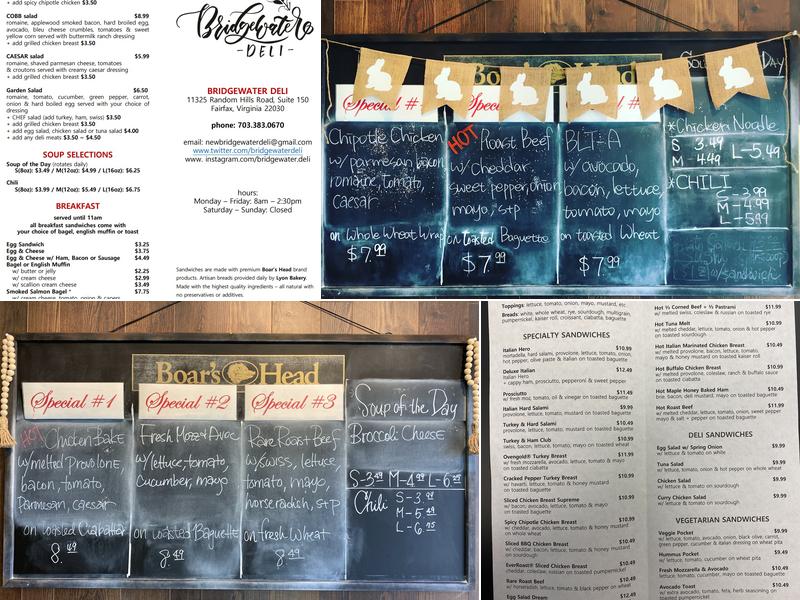 + add spicy chipotle chicken $3.50
COBB salad $8.99
romaine, applewood smoked bacon, hard boiled egg,
avocado, bleu cheese crumbles, tomatoes & sweet
yellow corn served with buttermilk ranch dressing
+ add grilled chicken breast $3.50
CAESAR salad $5.99
romaine, shaved parmesan cheese, tomatoes
& croutons served with creamy caesar dressing
+ add grilled chicken breast $3.50
Garden Salad $6.50
romaine, tomato, cucumber, green pepper, carrot,
onion & hard boiled egg served with your choice of
dressing
+ CHEF salad (add turkey, ham, swiss) $3.50
+ add grilled chicken breast $3.50
+ add egg salad, chicken salad or tuna salad $4.00
+ add any deli meats $3.50 ~ $4.50
SOUP SELECTIONS
Soup of the Day (rotates daily)
S(8oz): $3.49 / M(12oz): $4.99 / L(16oz): $6.25
Chili
S(8oz): $3.99 / M(12oz): $5.49 / L(16oz): $6.75
BREAKFAST
served until 11am
all breakfast sandwiches come with
your choice of bagel, english muffin or toast
Egg Sandwich $3.25
Egg & Cheese $3.75
Egg & Cheese w/ Ham, Bacon or Sausage $4.49
Bagel or English Muffin
w/ butter or jelly $2.25
w/ cream cheese $2.99
w/ scallion cream cheese $3.49
Smoked Salmon Bagel * $7.75
w/ cream cheese, tomato, onion & capers
Bridgewater
- DELI -
BRIDGEWATER DELI
11325 Random Hills Road, Suite 150
Fairfax, Virginia 22030
phone: 703.383.0670
email: newbridgewaterdeli@gmail.com
www.twitter.com/bridgewaterdeli
www. instagram.com/bridgewater.deli
hours:
Monday – Friday: 8am – 2:30pm
Saturday – Sunday: Closed
Sandwiches are made with premium Boar's Head brand
products. Artisan breads provided daily by Lyon Bakery.
Made with the highest quality ingredients – all natural with
no preservatives or additives.
Boar's Head
Special #
Chipotle Chicken
w/ parmesan, bacon
romaine, tomato,
Caesar
on Whole Wheat Wrap
$7.99
Special
HOT Roast Beef
w/ cheddar,
sweet pepper, onion
mayo, s+p
on toasted Baguette
$7.99
Special #
BLT+A
w/ avocado,
bacon, lettuce,
tomato, mayo
on toasted Wheat
$7.99
Day
*Chicken Noodle
S 3.49
M - 4.49 L - 5.49
*CHILI
S - 3.99
M - 4.99
L - 5.99
w/ sandwich
Boar's Head
Special #1
HOT Chicken Bake
w/ melted Provolone,
bacon, tomato,
Parmesan, caesar
on toasted Ciabatta
8.49
Special #2
Fresh Mozz & Avoc
w/ lettuce, tomato,
Cucumber, mayo
on toasted Baguette
8.49
Special #3
Rare Roast Beef
w/ swiss, lettuce,
tomato, mayo,
horseradish, s+p
on fresh Wheat
8.49
Soup of the Day
Broccoli Cheese
S-3.49 M-4.99 L-6.25
Chili S - 3.99
M - 5.49
L - 6.75
Toppings: lettuce, tomato, onion, mayo, mustard, etc.
Breads: white, whole wheat, rye, sourdough, multigrain,
pumpernickel, kaiser roll, croissant, ciabatta, baguette
SPECIALTY SANDWICHES
Italian Hero $10.99
mortadella, hard salami, provolone, lettuce, tomato, onion,
hot pepper, olive paste & italian on toasted baguette
Deluxe Italian $12.49
Italian Hero
+ cappy ham, prosciutto, pepperoni & sweet pepper
Prosciutto $11.49
w/ fresh moz, tomato, oil & vinegar on toasted baguette
Italian Hard Salami $9.99
provolone, lettuce, tomato, mustard on toasted baguette
Turkey & Hard Salami $10.49
provolone, lettuce, tomato, mustard on toasted baguette
Turkey & Ham Club $10.99
swiss, bacon, lettuce, tomato, mayo on toasted wheat
Ovengold® Turkey Breast $11.99
w/ fresh mozzarella, avocado, lettuce, tomato & mayo
on toasted ciabatta
Cracked Pepper Turkey Breast $10.99
w/ havarti, lettuce, tomato & honey mustard
on toasted baguette
Sliced Chicken Breast Supreme $10.99
w/ bacon, avocado, lettuce, tomato & mayo
on toasted baguette
Spicy Chipotle Chicken Breast $10.99
w/ cheddar, avocado, lettuce, tomato & honey mustard
on whole wheat
Sliced BBQ Chicken Breast $10.99
w/ cheddar, bacon, lettuce, tomato & honey mustard
on toasted sourdough
EverRoast® Sliced Chicken Breast $10.49
cheddar, coleslaw, russian on toasted pumpernickel
Rare Roast Beef $10.49
w/ horseradish, lettuce, tomato & black pepper on wheat
Egg Salad Dream $12.49
Hot ½ Corned Beef + ½ Pastrami $11.99
w/ melted swiss, coleslaw & russian on toasted rye
Hot Tuna Melt $10.99
w/ melted cheddar, lettuce, tomato, onion & hot pepper
on toasted sourdough
Hot Italian Marinated Chicken Breast $10.49
w/ melted provolone, bacon, lettuce, tomato,
honey mustard & mayo on toasted kaiser roll
Hot Buffalo Chicken Breast $10.99
w/ melted provolone, coleslaw, ranch & buffalo sauce
on toasted ciabatta
Hot Maple Honey Baked Ham $10.49
brie, bacon, deli mustard, mayo on toasted baguette
Hot Roast Beef $11.99
w/ melted cheddar, lettuce, tomato, onion, sweet pepper
mayo & salt + pepper on toasted baguette
DELI SANDWICHES
Egg Salad w/ Spring Onion $9.99
w/ lettuce & tomato on white
Tuna Salad $9.99
w/ lettuce, tomato, onion & hot pepper on whole wheat
Chicken Salad $9.99
w/ lettuce & tomato on sourdough
Curry Chicken Salad $9.99
w/ lettuce & tomato on sourdough
VEGETARIAN SANDWICHES
Veggie Pocket $9.99
w/ lettuce, tomato, avocado, onion, black olive, carrot,
green pepper, cucumber & italian dressing on wheat pita
Hummus Pocket $9.49
w/ lettuce, tomato, cucumber on wheat pita
Fresh Mozzarella & Avocado $10.49
lettuce, tomato, cucumber, mayo on toasted baguette
Avocado Toast $10.49
w/ extra avocado, tomato, feta, herb seasoning on
toasted pumpernickel